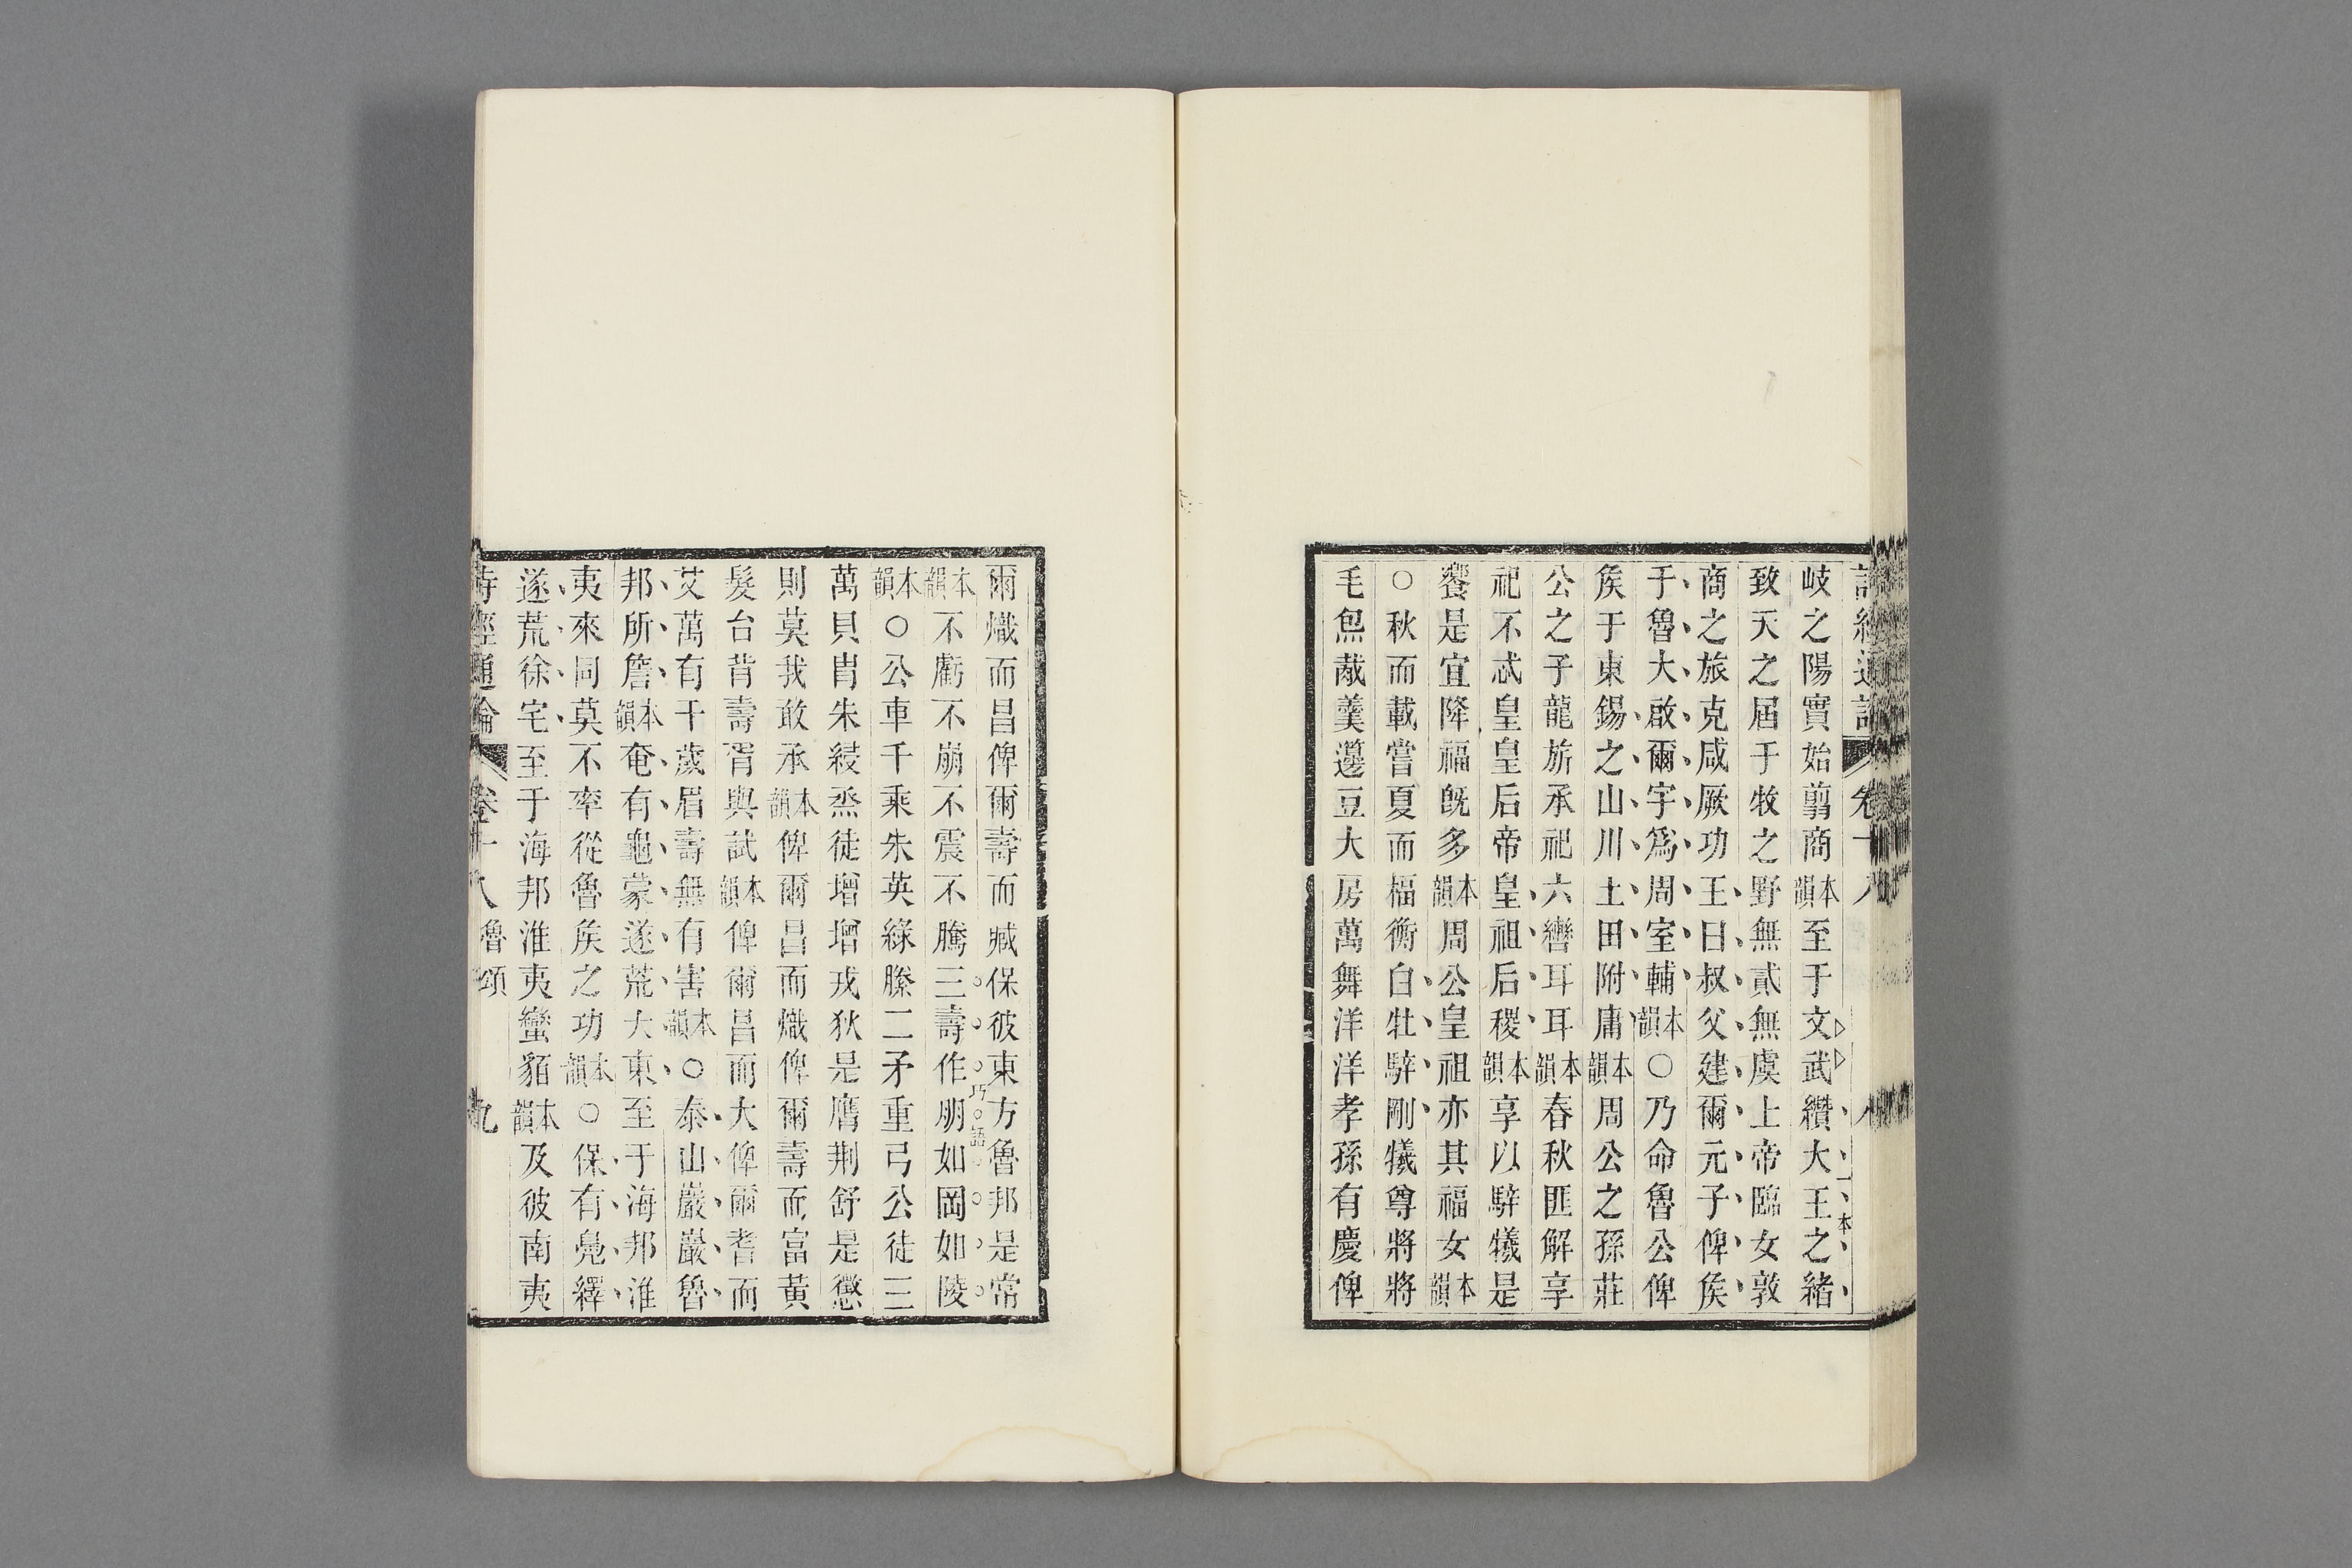 岐之陽實始翦商本韻至于文武纘大王之緒
致天之屆于牧之野無貳無虞上帝臨女敦
商之旅克咸厥功王曰叔父建爾元子俾矦
于魯大啟爾宇爲周室輔本韻○乃命魯公俾
矦于東錫之山川土田附庸本韻周公之孫莊
公之子龍旂承祀六轡耳耳本韻春秋匪解享
祀不忒皇皇后帝皇祖后稷本韻享以騂犧是
饗是宜降福旣多本韻周公皇祖亦其福女本韻
○秋而載嘗夏而楅衡白牡騂剛犧尊將將
毛炰胾羹籩豆大房萬舞洋洋孝孫有慶俾
爾熾而昌俾爾壽而臧保彼東方魯邦是常
本韻不虧不崩不震不騰三壽作朋如岡如陵
巧語
本韻○公車千乘朱英綠縢二矛重弓公徒三
萬貝胄朱綅烝徒增增戎狄是膺荆舒是懲
則莫我敢承本韻俾爾昌而熾俾爾壽而富黃
髮台背壽胥與試本韻俾爾昌而大俾爾耆而
艾萬有千歲眉壽無有害本韻○泰山巖巖魯
邦所詹本韻奄有龜蒙遂荒大東至于海邦淮
夷來同莫不率從魯矦之功本韻○保有鳧繹
遂荒徐宅至于海邦淮夷蠻貊本韻及彼南夷
詩經通論 卷十八魯頌 九